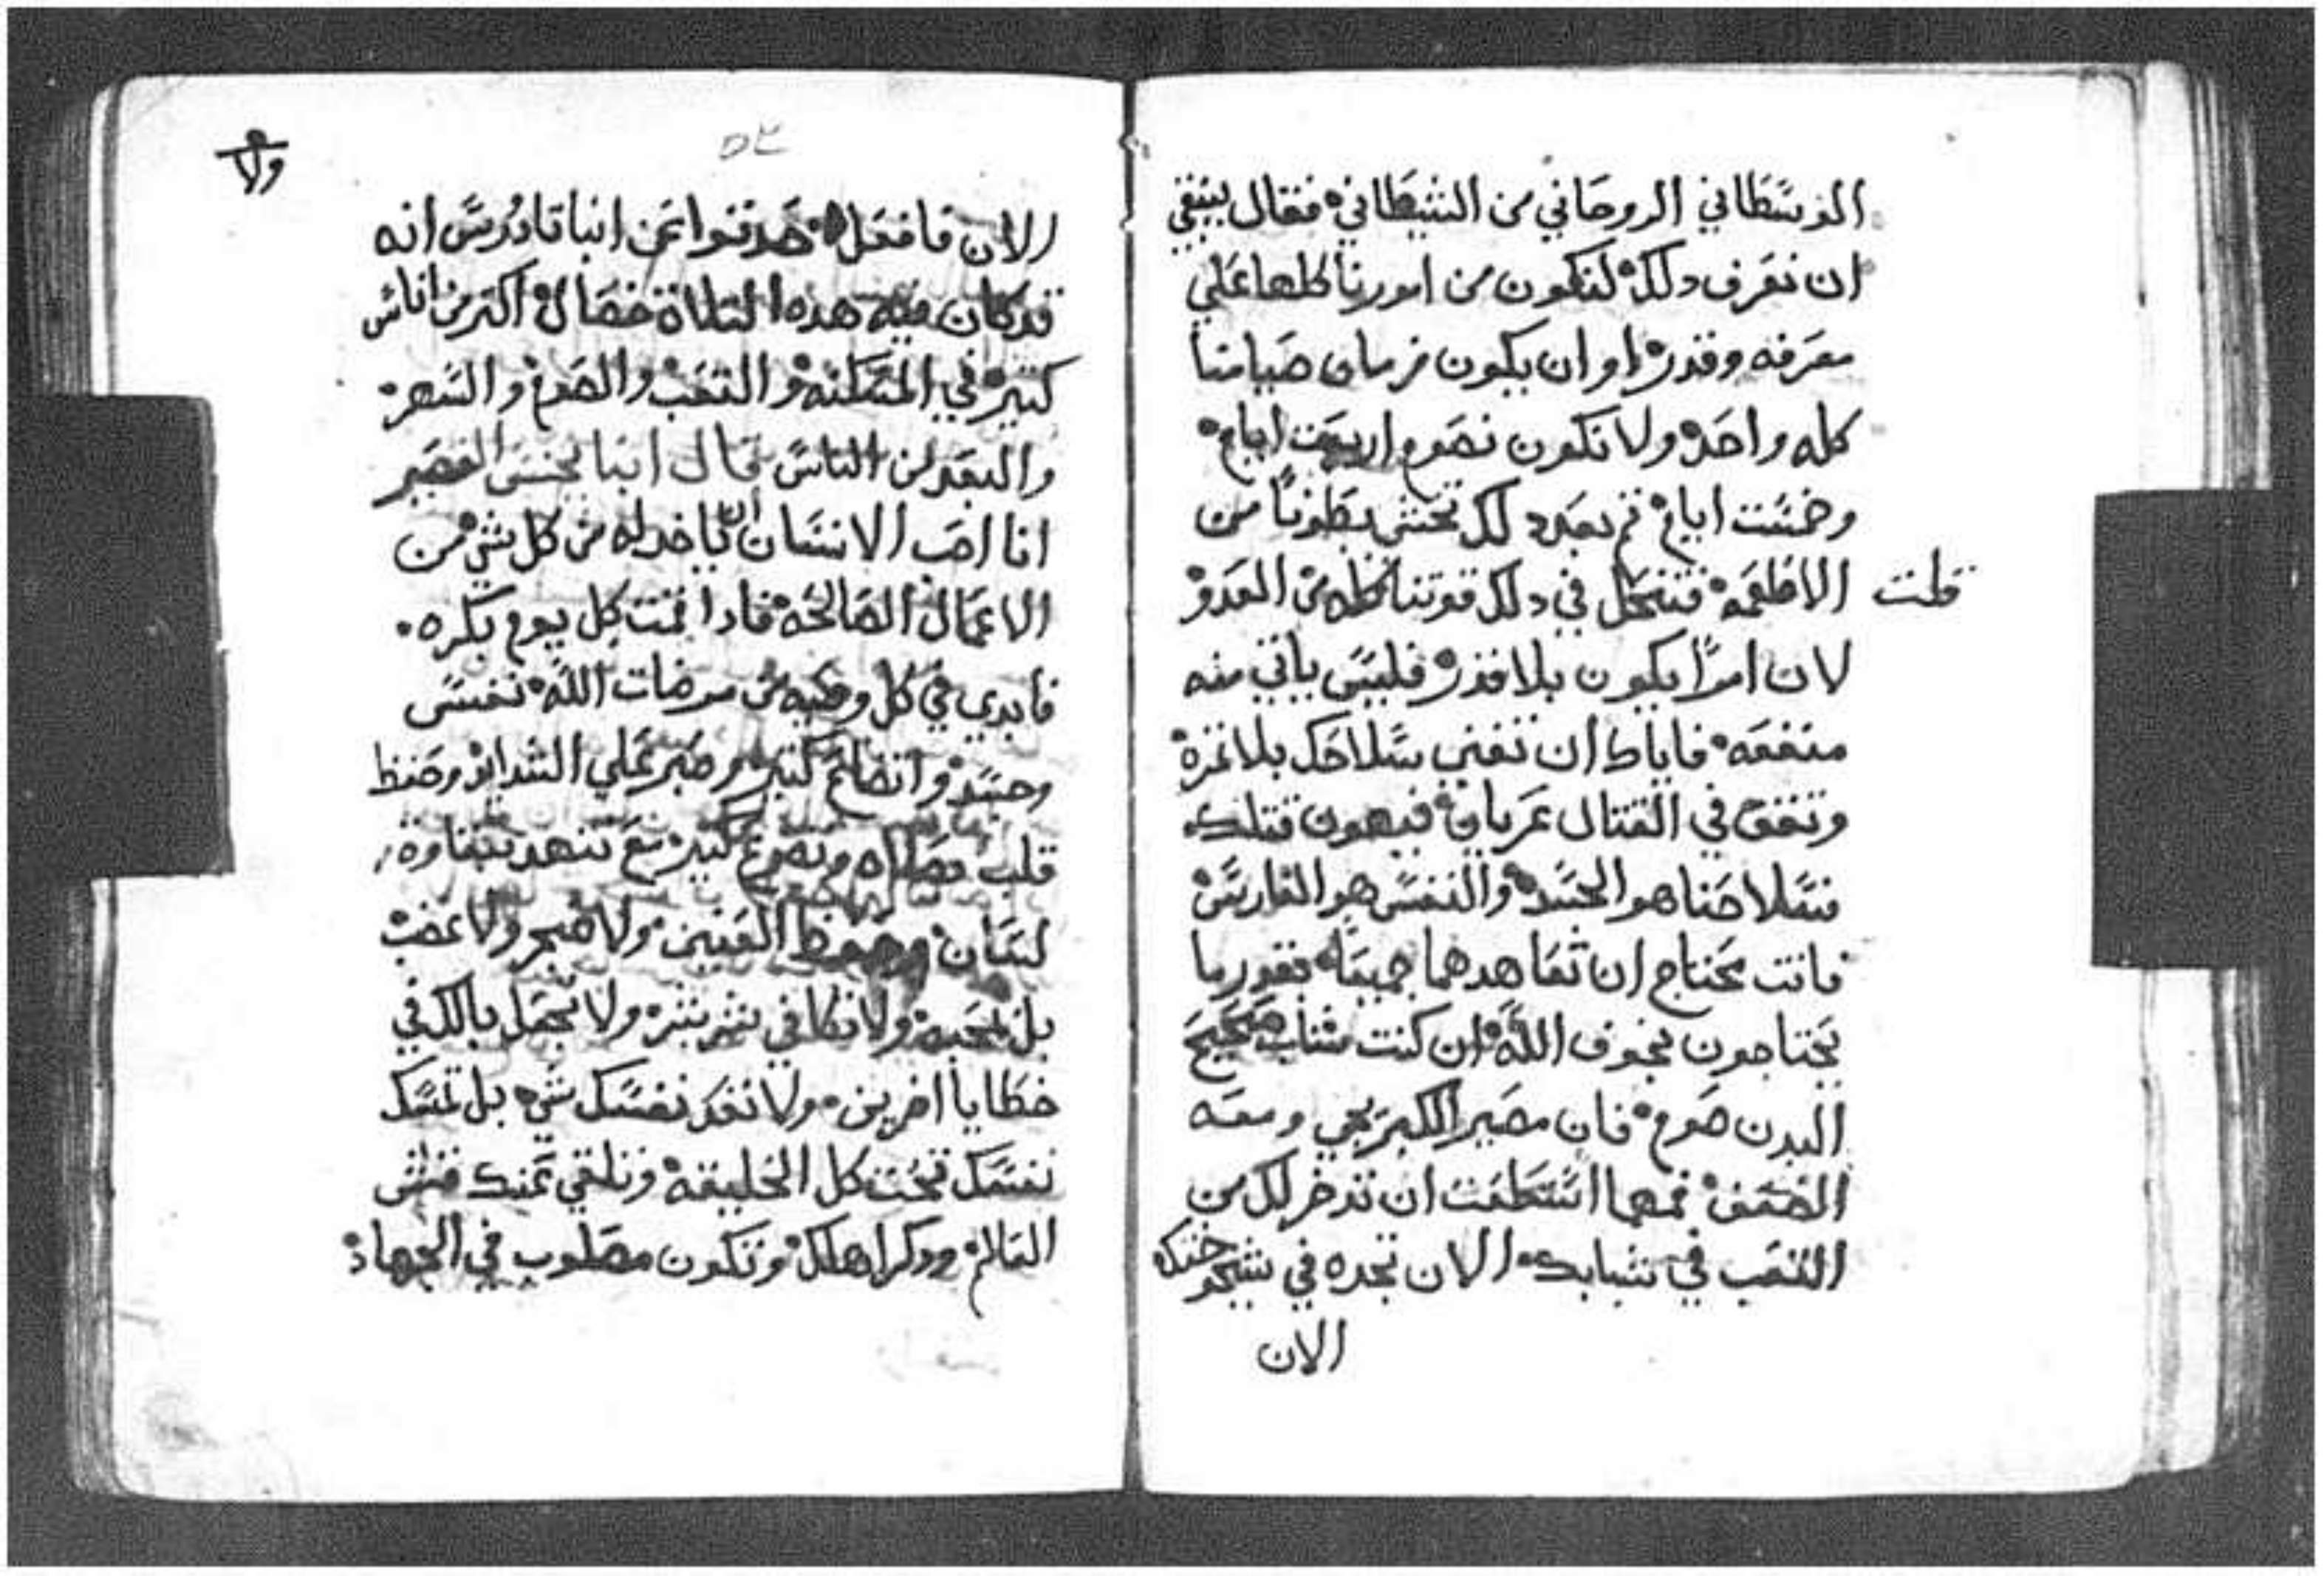 الوسطاني الروحاني من الشيطاني فقال ينبغي
ان نعرف دلك لنكون من امورنا كلها علي
معرفه وقدر او ان يكون زمان صيامنا
كله واحد ولا نكون نصوم اربعت ايام
وخمست ايام ثم بعد دلك نحشي بطوننا من
الاطعمه فتنحل في دلك قوتنا كلها من العدو
قلت
لان امرًا يكون بلا قدر فليس ياتي منه
منفعه فاياك ان تفني سلاحك بلا تمره
وتقف في القتال عريان فيهون قتلك
فسلاحنا هو الجسد والنفس هو الفارس
فانت تحتاج ان تعاهدهما جميعًا بقدر ما
يحتاجون بخوف الله ان كنت شاب صحيح
البدن صوم فان مصير الكبر يجي ومعه
الضعف فمهما استطعت ان تدخر لك من
التعب في شبابك الان تجده في شيخوختك
الان
ولا
الان فافعل حدتوا عن انبا تادرس انه
قد كان فيه هده التلاتة خصال اكتر من اناس
كتير في المسكنه والتعب والصوم والسهر
والبعد من الناس قال انبا يحنس القصير
انا احب الانسان ان ياخد له من كل شي من
الاعمال الصالحه فادا قمت كل يوم بكره
فابدي في كل وصيه من مرضات الله نفس
وجسد واتضاع كتير وصبر علي الشدايد وحفظ
قلب وصلاه وتضرع كتير مع تنهد بنقاوة
لسان وحفظ العينين ولا ضجر ولا غضب
بل محبه ولا تكافي شر بشر ولا تجعل بالك في
خطايا اخرين ولا تعد نفسك شي بل تمسك
نفسك تحت كل الخليقه وتلقي عنك قنش
العالم ودكر اهلك وتكون مصلوب في الجهاد